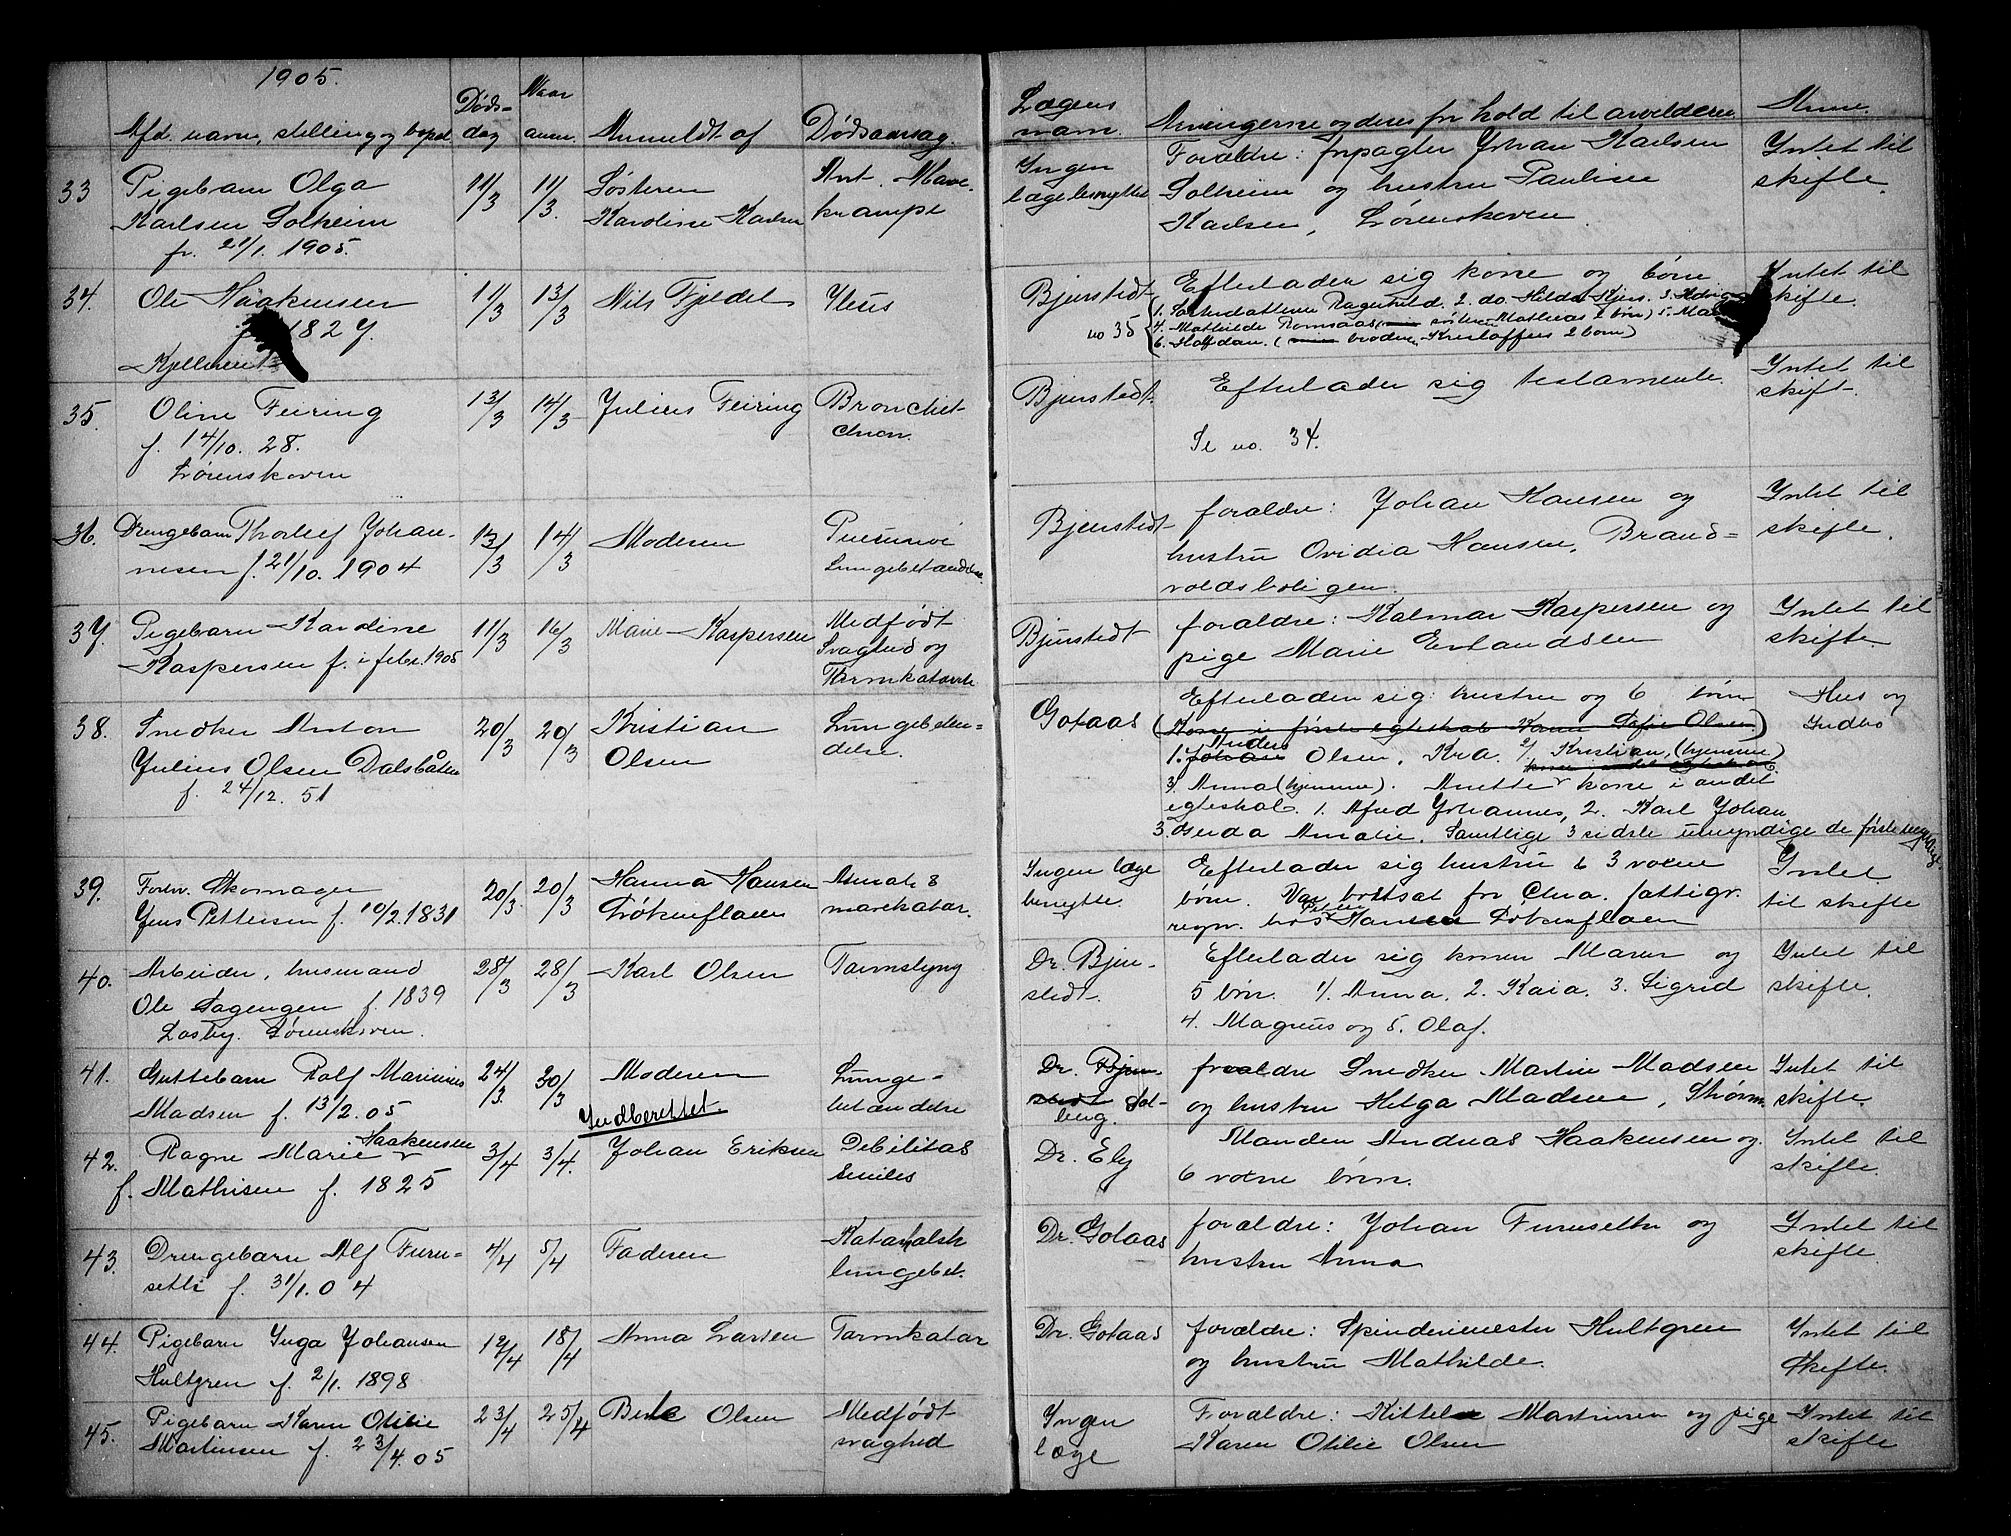 1905.
Afd. navn, stilling og bopæl
Døds-
dag
Naar
anm.
Anmeldt af
Dødsaarsag.
Lægens
navn.
Arvingerne og deres forhold til arveladeren
Anm.
33 Pigebarn Olga
Karlsen Solheim
f. 21/1. 1905.
11/3
11/3.
Søsteren
Karoline Karlsen
Ant. Mave-
krampe
Ingen
læge benyttet
Forældre: forpagter Johan Karlsen
Solheim og hustru Pauline
Karlsen, Lørenskoven.
Intet til
skifte.
34. Ole Haakensen
1827.
Kjellerent
11/3
13/3
Nils Fjeldet
Ileus
Bjerstedt
Efterlader sig kone og børn
no 35
1. Søsterdatteren Ragnhild. 2. do. Hilda Kjus. 3.
4. Mathilde Romsaas søsteren Mathias 2 børn) 5. Ma
6. Halfdan. ( broderen Kristoffers 2 børn)
Intet til
skifte.
35. Oline Feiring
f. 14/10. 28.
Lørenskoven
13/3
14/3
Julius Feiring
Bronchit
chron.
Bjerstedt.
Efterlader sig testamente.
Se no. 34.
Intet til
skift.
36. Drengebarn Thorleif Johan-
nesen f. 21/10. 1904
13/3
14/3
Moderen
Pneumoni
Lungebetændelse
Bjerstedt
forældre: Johan Hansen og
hustru Ovidia Hansen, Brand-
voldsboligen.
Intet til
skifte.
37. Pigebarn Karoline
Kaspersen f. i febr. 1905
11/3
16/3
Marie Kaspersen
Medfødt
Svaghed og
Tarmkatarrh
Bjerstedt
forældre: Kalmar Kaspersen og
pige Marie Erlandsen
Intet til
skifte.
38. Snedker Anton
Julius Olsen Dalsbåten
f. 24/12. 51
20/3
20/3
Kristian
Olsen
Lungebetæn-
delse.
Gotaas
Efterlader sig: hustru og 6 børn
(Kone i første egteskab Karen Sofie Olsen)
1. Johan Anders Olsen, Kra. 2/ Kristian, (hjemme)
3. Anna (hjemme). Anette kone i andet
egteskab. 1. Alfred Johannes, 2. Karl Johan
3. Gerda Amalie. Samtlige 3 sidste umyndige de første myndige
Hus og
Indbo
39. Forhv. Skomager
Jens Pettersen f. 10/2. 1831
20/3.
20/3
Hanna Hansen
Løkenflaen
Annah &
mavekatar.
Ingen læge
benytte
Efterlader sig hustru & 3 voxne
børn. Var bortsat for Chra. fattigv.
regn. hos Petter Hansen Løkenflaen
Intet
til skifte
40. Arbeider, husmand
Ole Hagengen f. 1839
Losby. Lørenskoven.
28/3
28/3
Karl Olsen
Tarmslyng
Dr. Bjer-
stedt.
Efterlader sig konen Maren og
5 børn. 1/. Anna. 2. Kaia. 3. Sigrid
4. Magnus og 5. Olaf.
Intet til
skifte.
41. Guttebarn Rolf Marinius
Madsen f. 13/2. 05
24/3.
30/3
Moderen
Indberettet.
Lunge-
betændelse
Dr. Bjer-
stedt Sol-
berg.
forældre Snedker Martin Madsen
og hustru Helga Madsen, Strøm.
Intet til
skifte.
42. Ragne Marie Haakensen
f. Mathisen f. 1825
3/4
3/4.
Johan Eriksen
Debilitas
Seniles
Dr. Ely
Manden Andreas Haakensen og
6 voxne børn.
Intet til
skifte.
43. Drengebarn Alf Furu-
setli f. 31/1. 04
4/4
5/4
Faderen
Katarralsk
lungebet.
Dr. Gotaas
forældre: Johan Furusetli og
hustru Anna
Intet til
skifte.
44. Pigebarn Inga Johansen
Hultgren f. 2/1. 1898
12/4
18/4
Anna Larsen
Tarmkatar
Dr. Gotaas
forældre: Spinderimester Hultgren
og hustru Mathilde.
Intet til
Skifte.
45. Pigebarn Karen Otilie
Martinsen f. 23/4. 05
23/4
25/4
Berte Olsen
Medfødt
svaghed
Ingen
læge
Forældre: Kittel Martinsen og pige
Karen Otilie Olsen
Intet til
skifte